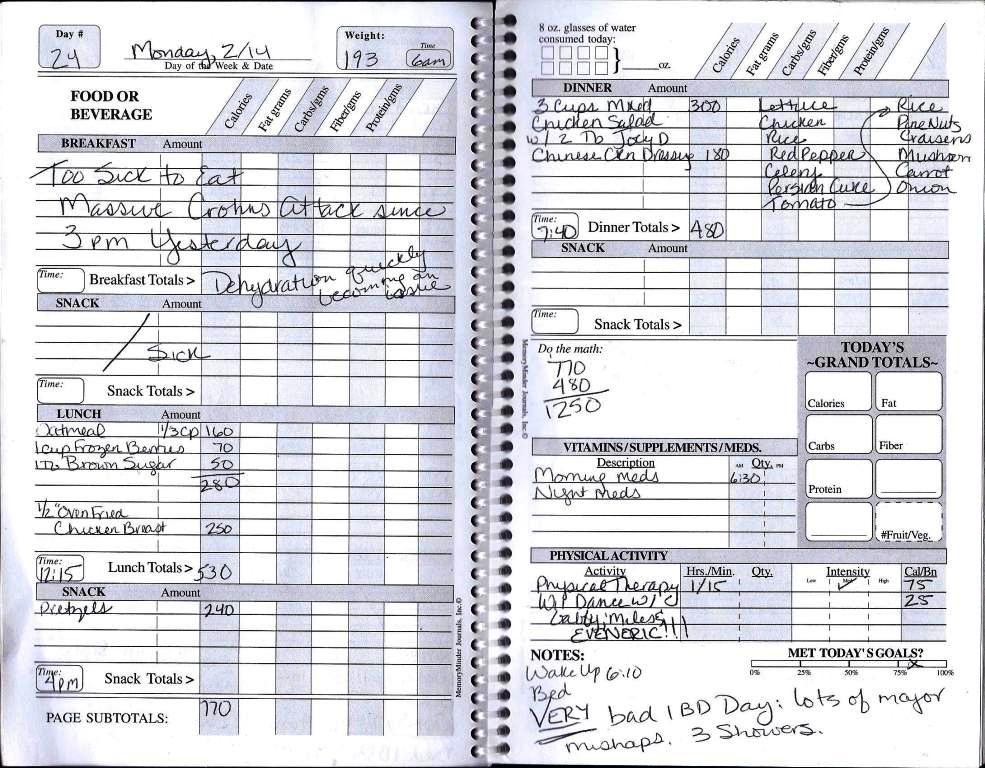 Day #
24
Monday, 2/14
Day of the Week & Date
Weight:
193
Time
6am
FOOD OR
BEVERAGE
Calories
Fat grams
Carbs/gms
Fiber/gms
Protein/gms
BREAKFAST Amount
Too Sick to Eat
Massive Crohns attack since
3pm Yesterday
Time:
Breakfast Totals >
Dehydration quickly
becoming an
issue
SNACK Amount
Sick
Time:
Snack Totals >
LUNCH Amount
Oatmeal 1/3 cp 160
1 cup Frozen Berries 70
1 Tb Brown Sugar 50
280
1/2 "Oven Fried
Chicken Breast 250
Time:
12:15
Lunch Totals > 530
SNACK Amount
Pretzels 240
Time:
4pm
Snack Totals >
PAGE SUBTOTALS: 770
MemoryMinder Journals, Inc.©
8 oz. glasses of water
consumed today:
oz.
Calories
Fat grams
Carbs/gms
Fiber/gms
Protein/gms
DINNER Amount
3 Cups Mixed 300 Lettuce Rice
Chicken Salad Chicken Pine Nuts
w/ 2 Tb Joey D Rice Craisens
Chinese Ckn Dressing 180 Red Pepper Mushroom
Celery Carrot
Persian Cuke Onion
Tomato
Time:
7:40
Dinner Totals > 480
SNACK Amount
Time:
Snack Totals >
MemoryMinder Journals, Inc.©
Do the math:
770
480
1250
TODAY'S
~GRAND TOTALS~
Calories Fat
Carbs Fiber
Protein
#Fruit/Veg.
VITAMINS/SUPPLEMENTS/MEDS.
Description AM Qty. PM
Morning Meds 6:30
Night Meds
PHYSICAL ACTIVITY
Activity Hrs./Min. Qty. Intensity Cal/Bn
Low Med High
Physical Therapy 1/15 75
Dance w/ 25
Gabby, Miles &
EVEN ERIC!!!
NOTES:
MET TODAY'S GOALS?
0% 25% 50% 75% 100%
Wake Up 6:10
Bed
VERY bad IBD Day: lots of major
mishaps. 3 Showers.